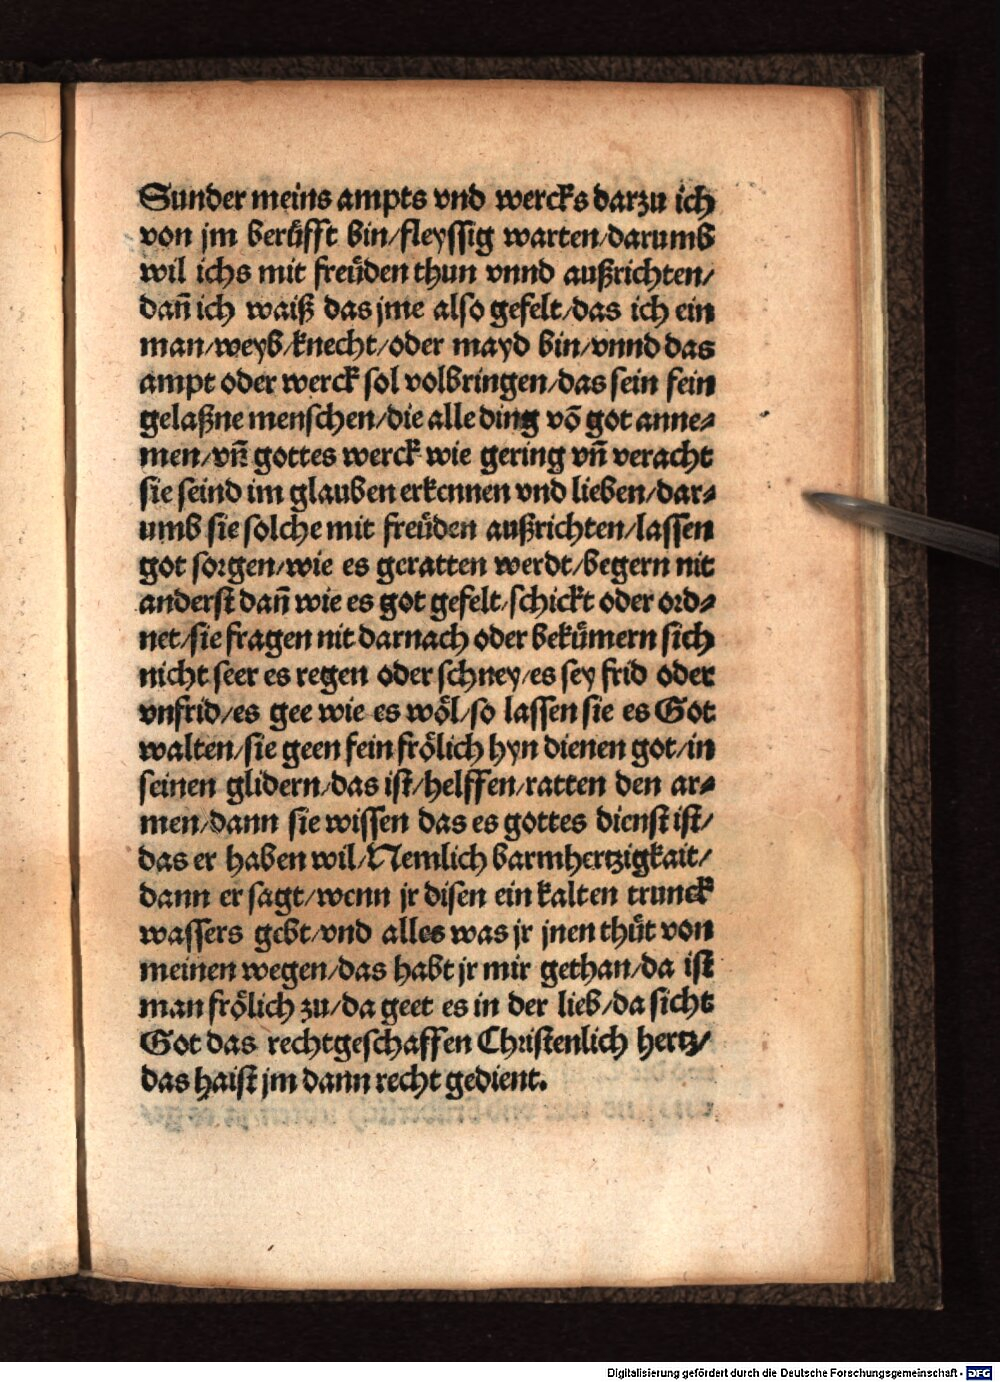 Sunder meins ampts vnd wercks darzu ich
von jm berůfft bin/fleyssig warten/darumb
wil ichs mit freüden thun vnnd außrichten/
dañ ich waiß das jme also gefelt/das ich ein
man/weyb/knecht/oder mayd bin/vnnd das
ampt oder werck sol volbringen/das sein fein
gelaßne menschen/die alle ding võ got anne⸗
men/vñ gottes werck wie gering vñ veracht
sie seind im glauben erkennen vnd lieben/dar⸗
umb sie solche mit freüden außrichten/lassen
got sorgen/wie es geratten werdt/begern nit
anderst dañ wie es got gefelt/schickt oder ord⸗
net/sie fragen nit darnach oder bekümern sich
nicht seer es regen oder schney/es sey frid oder
vnfrid/es gee wie es wöl/so lassen sie es Got
walten/sie geen fein frölich hyn dienen got/in
seinen glidern/das ist/helffen/ratten den ar⸗
men/dann sie wissen das es gottes dienst ist/
das er haben wil/Nemlich barmhertzigkait/
dann er sagt/wenn jr disen ein kalten trunck
wassers gebt/vnd alles was jr jnen thůt von
meinen wegen/das habt jr mir gethan/da ist
man frölich zu/da geet es in der lieb/da sicht
Got das rechtgeschaffen Christenlich hertz/
das haist jm dann recht gedient.
Digitalisierung gefördert durch die Deutsche Forschungsgemeinschaft - DFG